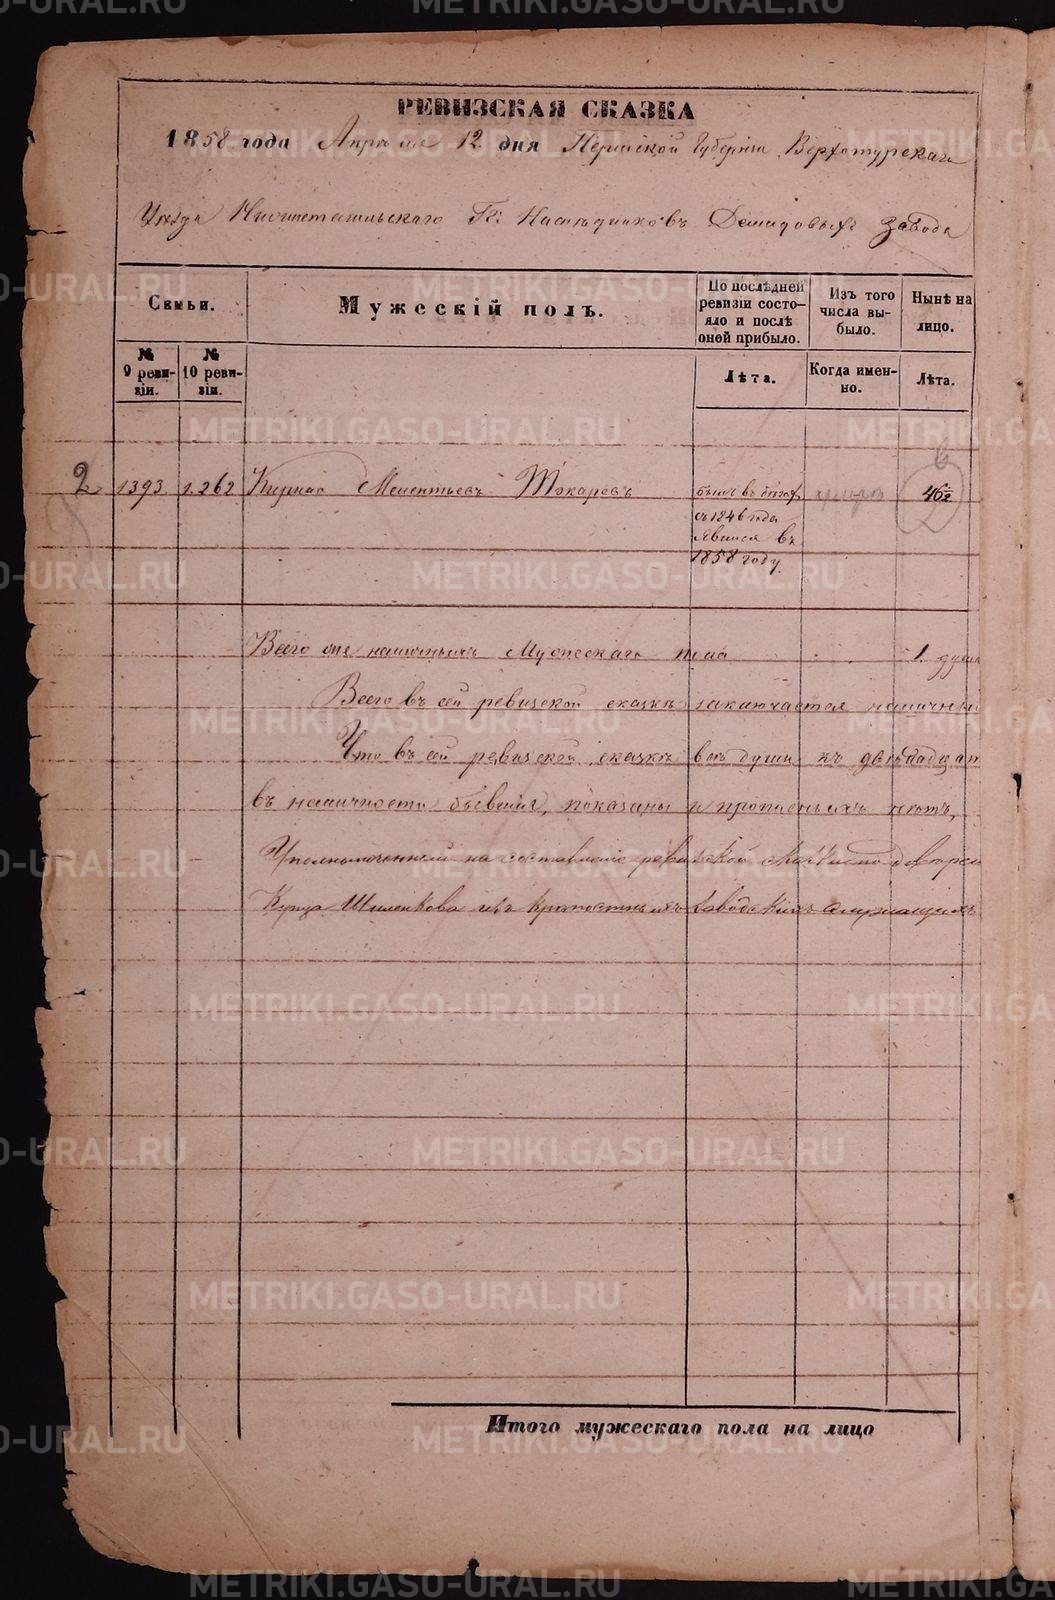 РЕВИЗСКАЯ СКАЗКА
1858 года Апреля 12 дня Пермской Губерніи Верхотурскаго
Уѣзда Нижнетагильскаго Гг: Наслѣдниковъ Демидовыхъ завода
Семьи.
Мужескій полъ.
По послѣдней ревизіи состояло и послѣ оней прибыло.
Изъ того числа выбыло.
Нынѣ на лицо.
№ 9 ревизіи.
№ 10 ревизіи.
Лѣта.
Когда именно.
Лѣта.
2 1393 1.262 Мелентьевъ Токаревъ
былъ в бѣгах
съ 1846 года
явился въ
1858 году.
Всего наличныхъ Мужескаго пола 1. душа
Всего въ сей ревизской сказкѣ заключается наличныхъ
Что въ сей ревизской сказкѣ всѣ души къ
въ наличности бывшія, показаны и прописныхъ нѣтъ,
Уполномоченный на составленіе ревизской
Шиленкова изъ крѣпостныхъ заводскихъ служащихъ
Итого мужескаго пола на лицо
METRIKI.GASO-URAL.RU